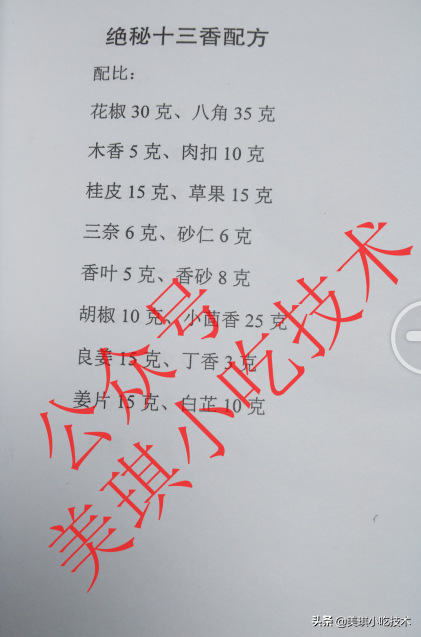 绝秘十三香配方
配比：
花椒 30 克、八角 35 克
木香 5 克、肉扣 10 克
桂皮 15 克、草果 15 克
三奈 6 克、砂仁 6 克
香叶 5 克、香砂 8 克
胡椒 10 克、小茴香 25 克
良姜 15 克、丁香 3 克
姜片 15 克、白芷 10 克
公众号
美琪小吃技术
头条 @美琪小吃技术